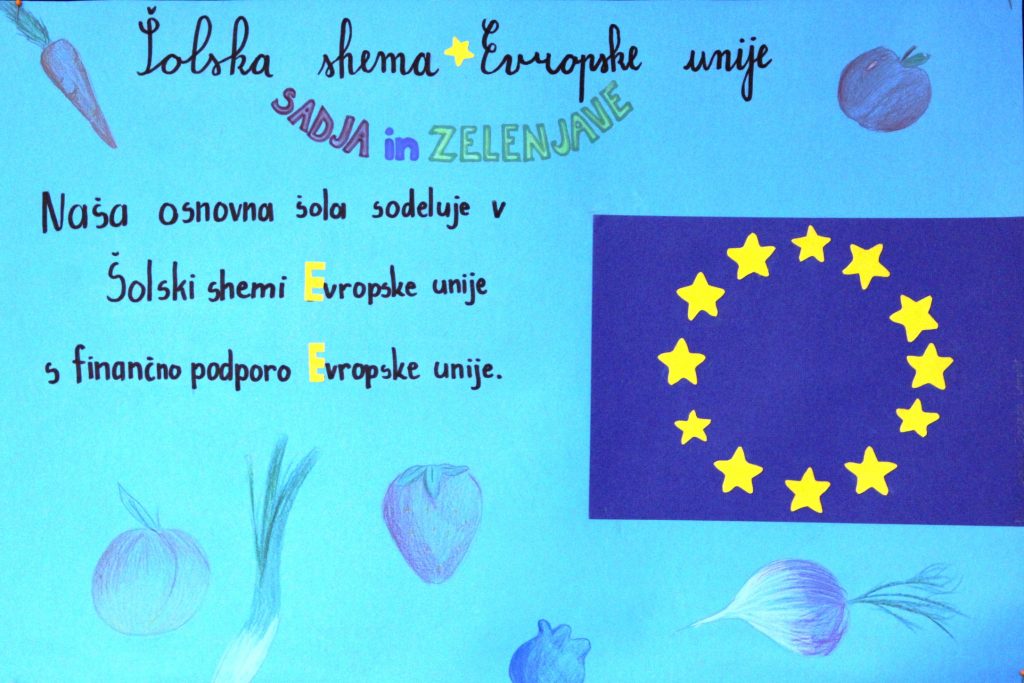 Šolska shema Evropske unije
SADJA in ZELENJAVE
Naša osnovna šola sodeluje v
Šolski shemi Evropske unije
s finančno podporo Evropske unije.